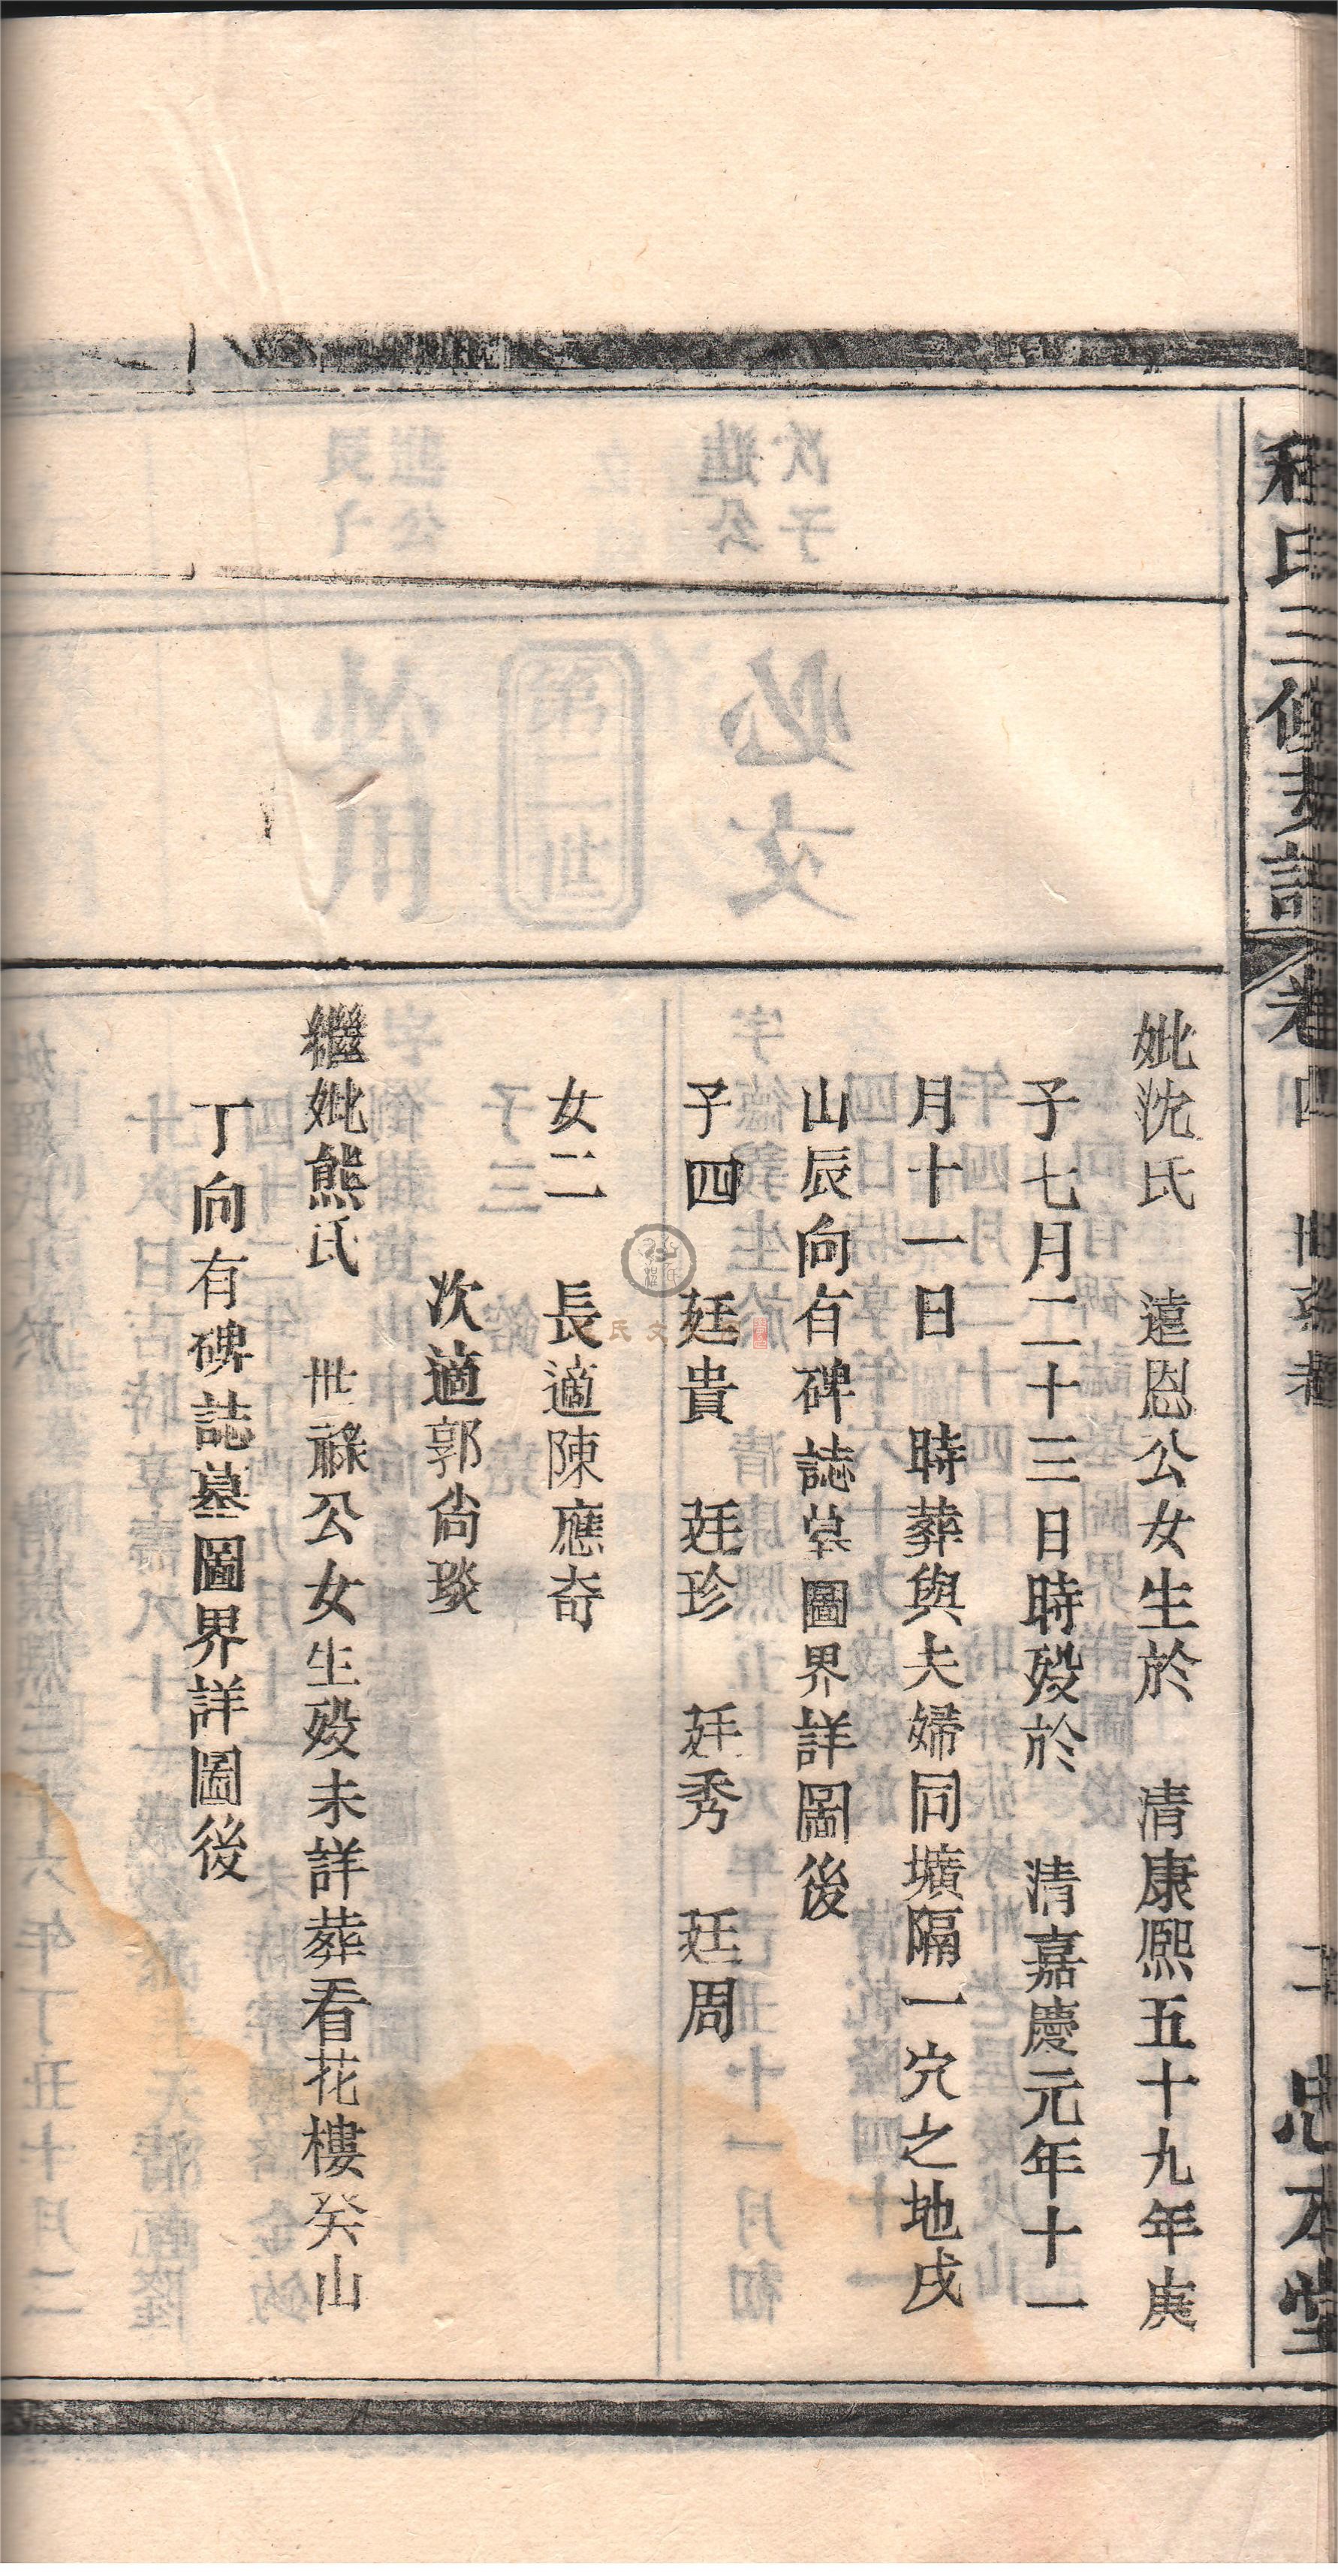 程氏三修支譜 卷四 世系卷 二 忠本堂
妣沈氏 遠恩公女生於 清康熙五十九年庚
子七月二十三日時歿於 清嘉慶元年十一
月十一日 時葬與夫婦同壙隔一穴之地戌
山辰向有碑誌墓圖界詳圖後
子四 廷貴 廷珍 廷秀 廷周
女二 長適陳應奇
次適郭尙琰
繼妣熊氏 世祿公女生歿未詳葬看花樓癸山
丁向有碑誌墓圖界詳圖後